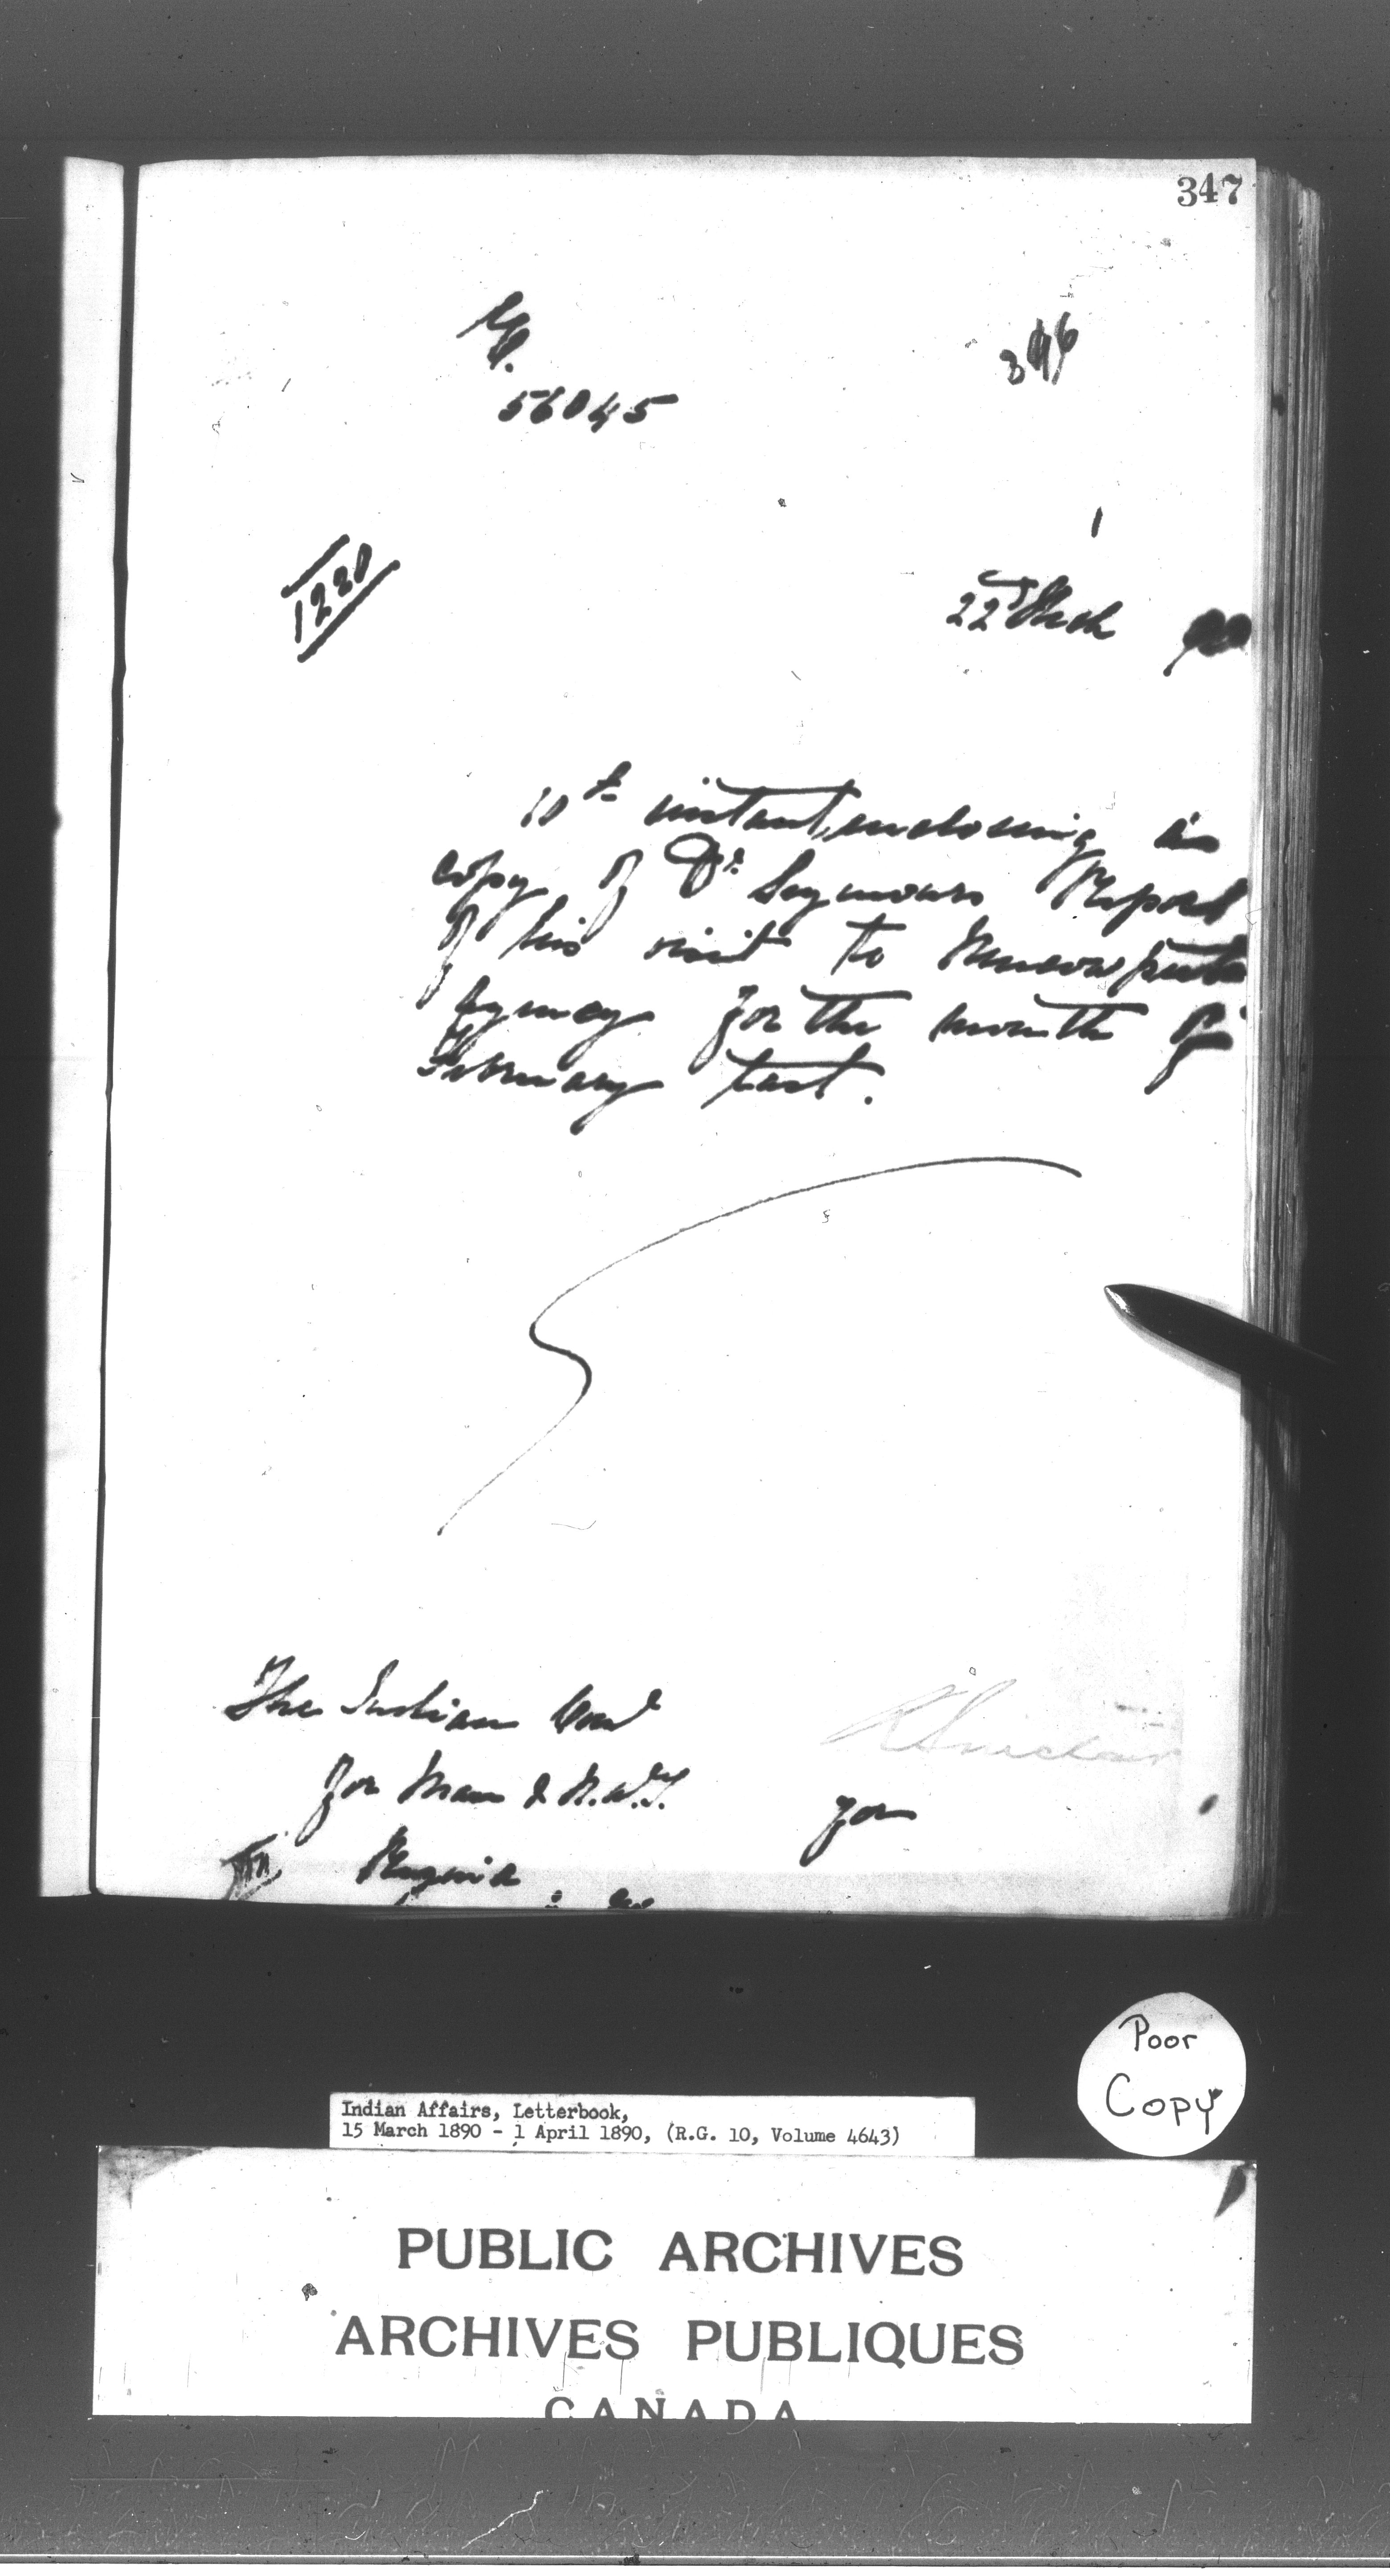 347
56045
346
1220
22d Mch 90
10th instant, enclosing in
copy of Dr Seymours Report
of his visit to Muscowpeetu
Agency for the month of
February last.
The Indian Comr
for Man & N.W.T.
Regina
R Sinclair
for
Poor
Copy
Indian Affairs, Letterbook,
15 March 1890 - 1 April 1890, (R.G. 10, Volume 4643)
PUBLIC ARCHIVES
ARCHIVES PUBLIQUES
CANADA